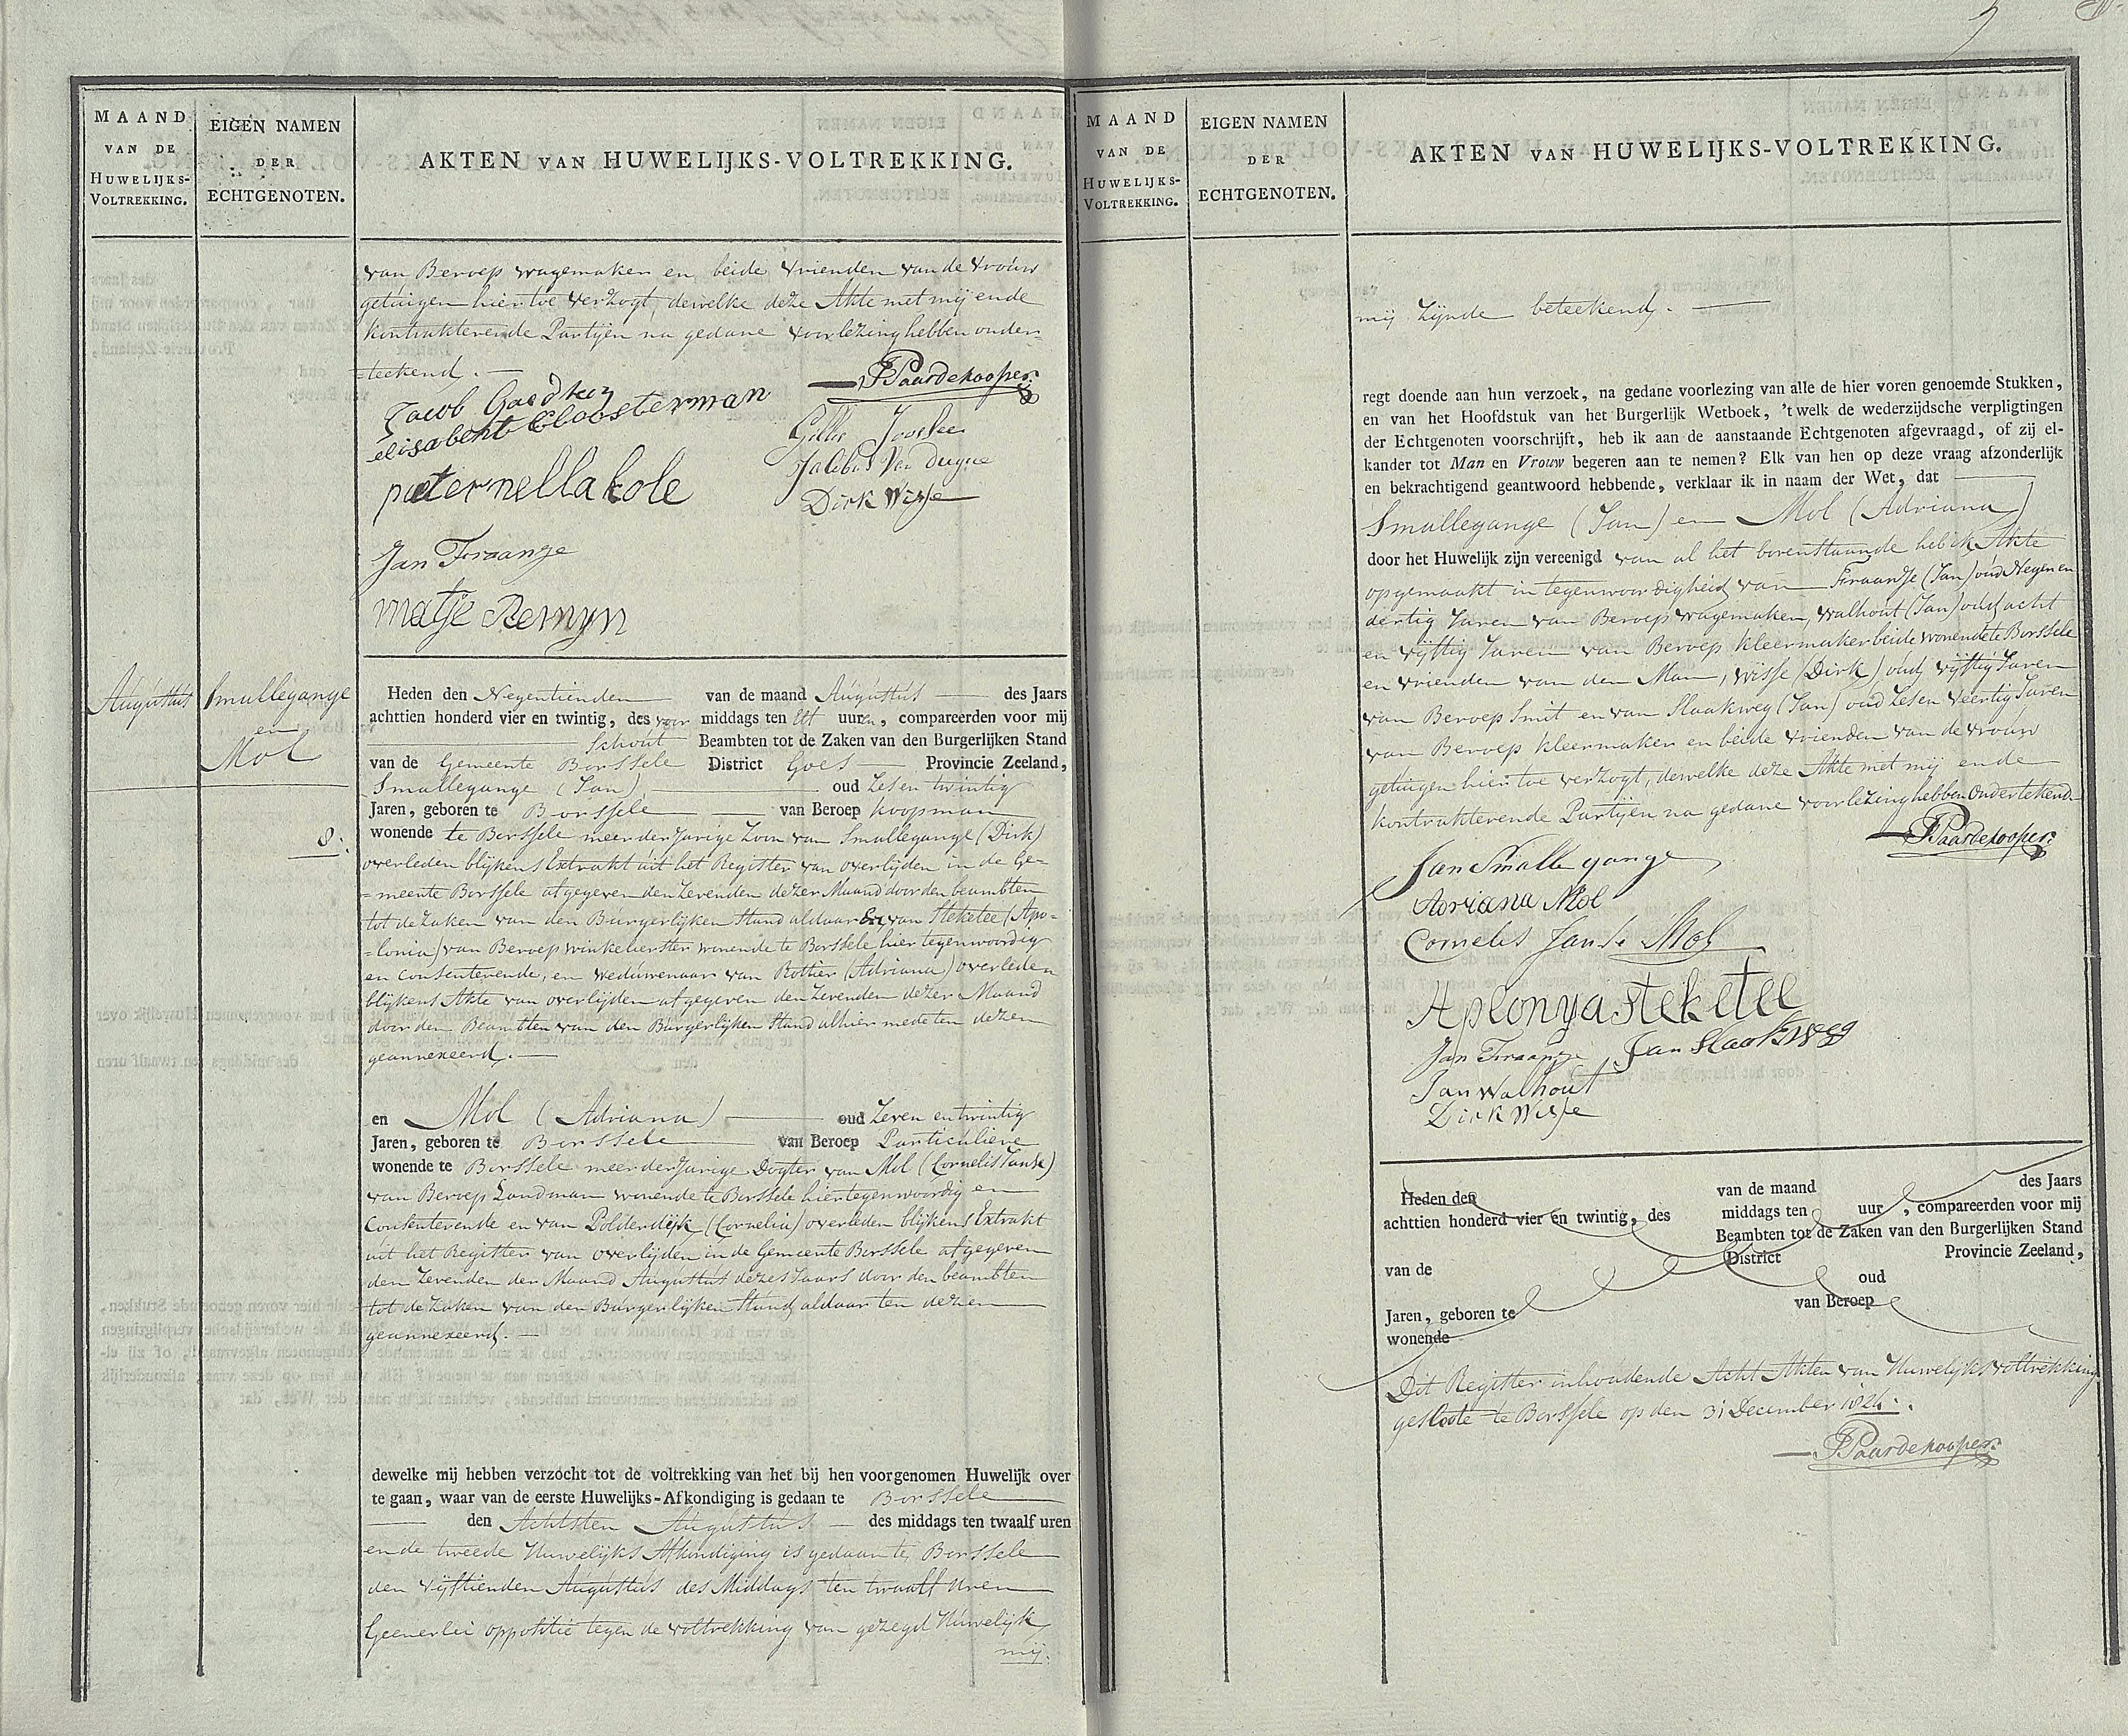 MAAND
VAN DE
HUWELIJKS-
VOLTREKKING.
EIGEN NAMEN
DER
ECHTGENOTEN.
AKTEN VAN HUWELIJKS-VOLTREKKING.
van Beroep wagemaker en beide vrienden van de vrouw
getuigen hier toe verzogt, dewelke deze Akte met mij ende
kontrakterende Partijen na gedane voorlezing hebben onder=
=teekend. —
Jacob
elisabeht Cloosterman
pieternella kole
Jan Fraanje
matje Remyn
Paardekooper
Gillis Joosse
Jacobus Van Duyne
Dirk Wisse
Augustus
Smallegange
en
Mol
8.
Heden den Negentienden van de maand Augustus des Jaars
achttien honderd vier en twintig, des voor middags ten Elf uuren, compareerden voor mij
Schout Beambten tot de Zaken van den Burgerlijken Stand
van de Gemeente Borssele District Goes Provincie Zeeland,
Smallegange (Jan) oud Zes en twintig
Jaren, geboren te Borssele van Beroep koopman
wonende te Borssele meerderjarige Zoon van Smallegange (Dirk)
overleden blijkens Extrakt uit het Register van overlijden in de Ge=
=meente Borssele afgegeven den Zevenden dezer Maand door den beambten
tot de zaken van den Burgerlijken Stand aldaar En van Steketee (Apo=
=lonia) van Beroep winkelierster wonende te Borssele hier tegenwoordig
en consenterende, en weduwenaar van Rottier (Adriana) overleden
blijkens Akte van overlijden afgegeven den Zevenden dezer Maand
door den Beambten van den Burgerlijken Stand alhier mede ten dezen
geannexeerd. —
en Mol (Adriana) oud Zeven en twintig
Jaren, geboren te Borssele van Beroep Particuliere
wonende te Borssele meerderjarige Dogter van Mol (Cornelis Janse)
van Beroep Landman wonende te Borssele hier tegenwoordig en
Consenterende en van Polderdijk (Cornelia) overleden blijkens Extrakt
uit het Register van overlijden in de Gemeente Borssele afgegeven
den Zevenden der Maand Augustus dezes Jaars door den beambten
tot de zaken van den Burgerlijken Stand aldaar ten dezen
geannexeerd. —
dewelke mij hebben verzocht tot de voltrekking van het bij hen voorgenomen Huwelijk over
te gaan, waar van de eerste Huwelijks-Afkondiging is gedaan te Borssele
den Achtsten Augustus des middags ten twaalf uren
en de tweede Huwelijks Afkondiging is gedaan te Borssele
den Vijftienden Augustus des Middags ten twaalf uren
Geenerlei oppositie tegen de voltrekking van gezegd Huwelijk
mij.
MAAND
VAN DE
HUWELIJKS-
VOLTREKKING.
EIGEN NAMEN
DER
ECHTGENOTEN.
AKTEN VAN HUWELIJKS-VOLTREKKING.
mij zijnde beteekend. —
regt doende aan hun verzoek, na gedane voorlezing van alle de hier voren genoemde Stukken,
en van het Hoofdstuk van het Burgerlijk Wetboek, 't welk de wederzijdsche verpligtingen
der Echtgenoten voorschrijft, heb ik aan de aanstaande Echtgenoten afgevraagd, of zij el-
kander tot Man en Vrouw begeren aan te nemen? Elk van hen op deze vraag afzonderlijk
en bekrachtigend geantwoord hebbende, verklaar ik in naam der Wet, dat
Smallegange (Jan) en Mol (Adriana)
door het Huwelijk zijn vereenigd van al het bovenstaande heb ik Akte
opgemaakt in tegenwoordigheid van Fraanje (Jan) oud Negen en
dertig Jaren van Beroep wagemaker, Walhout (Jan) oud acht
en vijftig Jaren van Beroep kleermaker beide wonende te Borssele
en vrienden van den Man, Wisse (Dirk) oud vijftig Jaren
van Beroep Smit en van Slaakweg (Jan) oud Zes en Veertig Jaren
van Beroep kleermaker en beide vrienden van de vrouw
getuigen hier toe verzogt, dewelke deze Akte met mij ende
kontrakterende Partijen na gedane voorlezing hebben Onderteekend.
Paardekooper
Jan Smallegange
Adriana Mol
Cornelis Janse Mol
Aplonya steketee
Jan Fraanje Jan Slaakweg
Jan Walhout
Dirk Wisse
Heden den van de maand des Jaars
achttien honderd vier en twintig, des middags ten uur , compareerden voor mij
Beambten tot de Zaken van den Burgerlijken Stand
van de District Provincie Zeeland,
oud
Jaren, geboren te van Beroep
wonende
Dit Register inhoudende Acht Akten van Huwelijks voltrekking
geslote te Borssele op den 31 December 1824.
Paardekooper